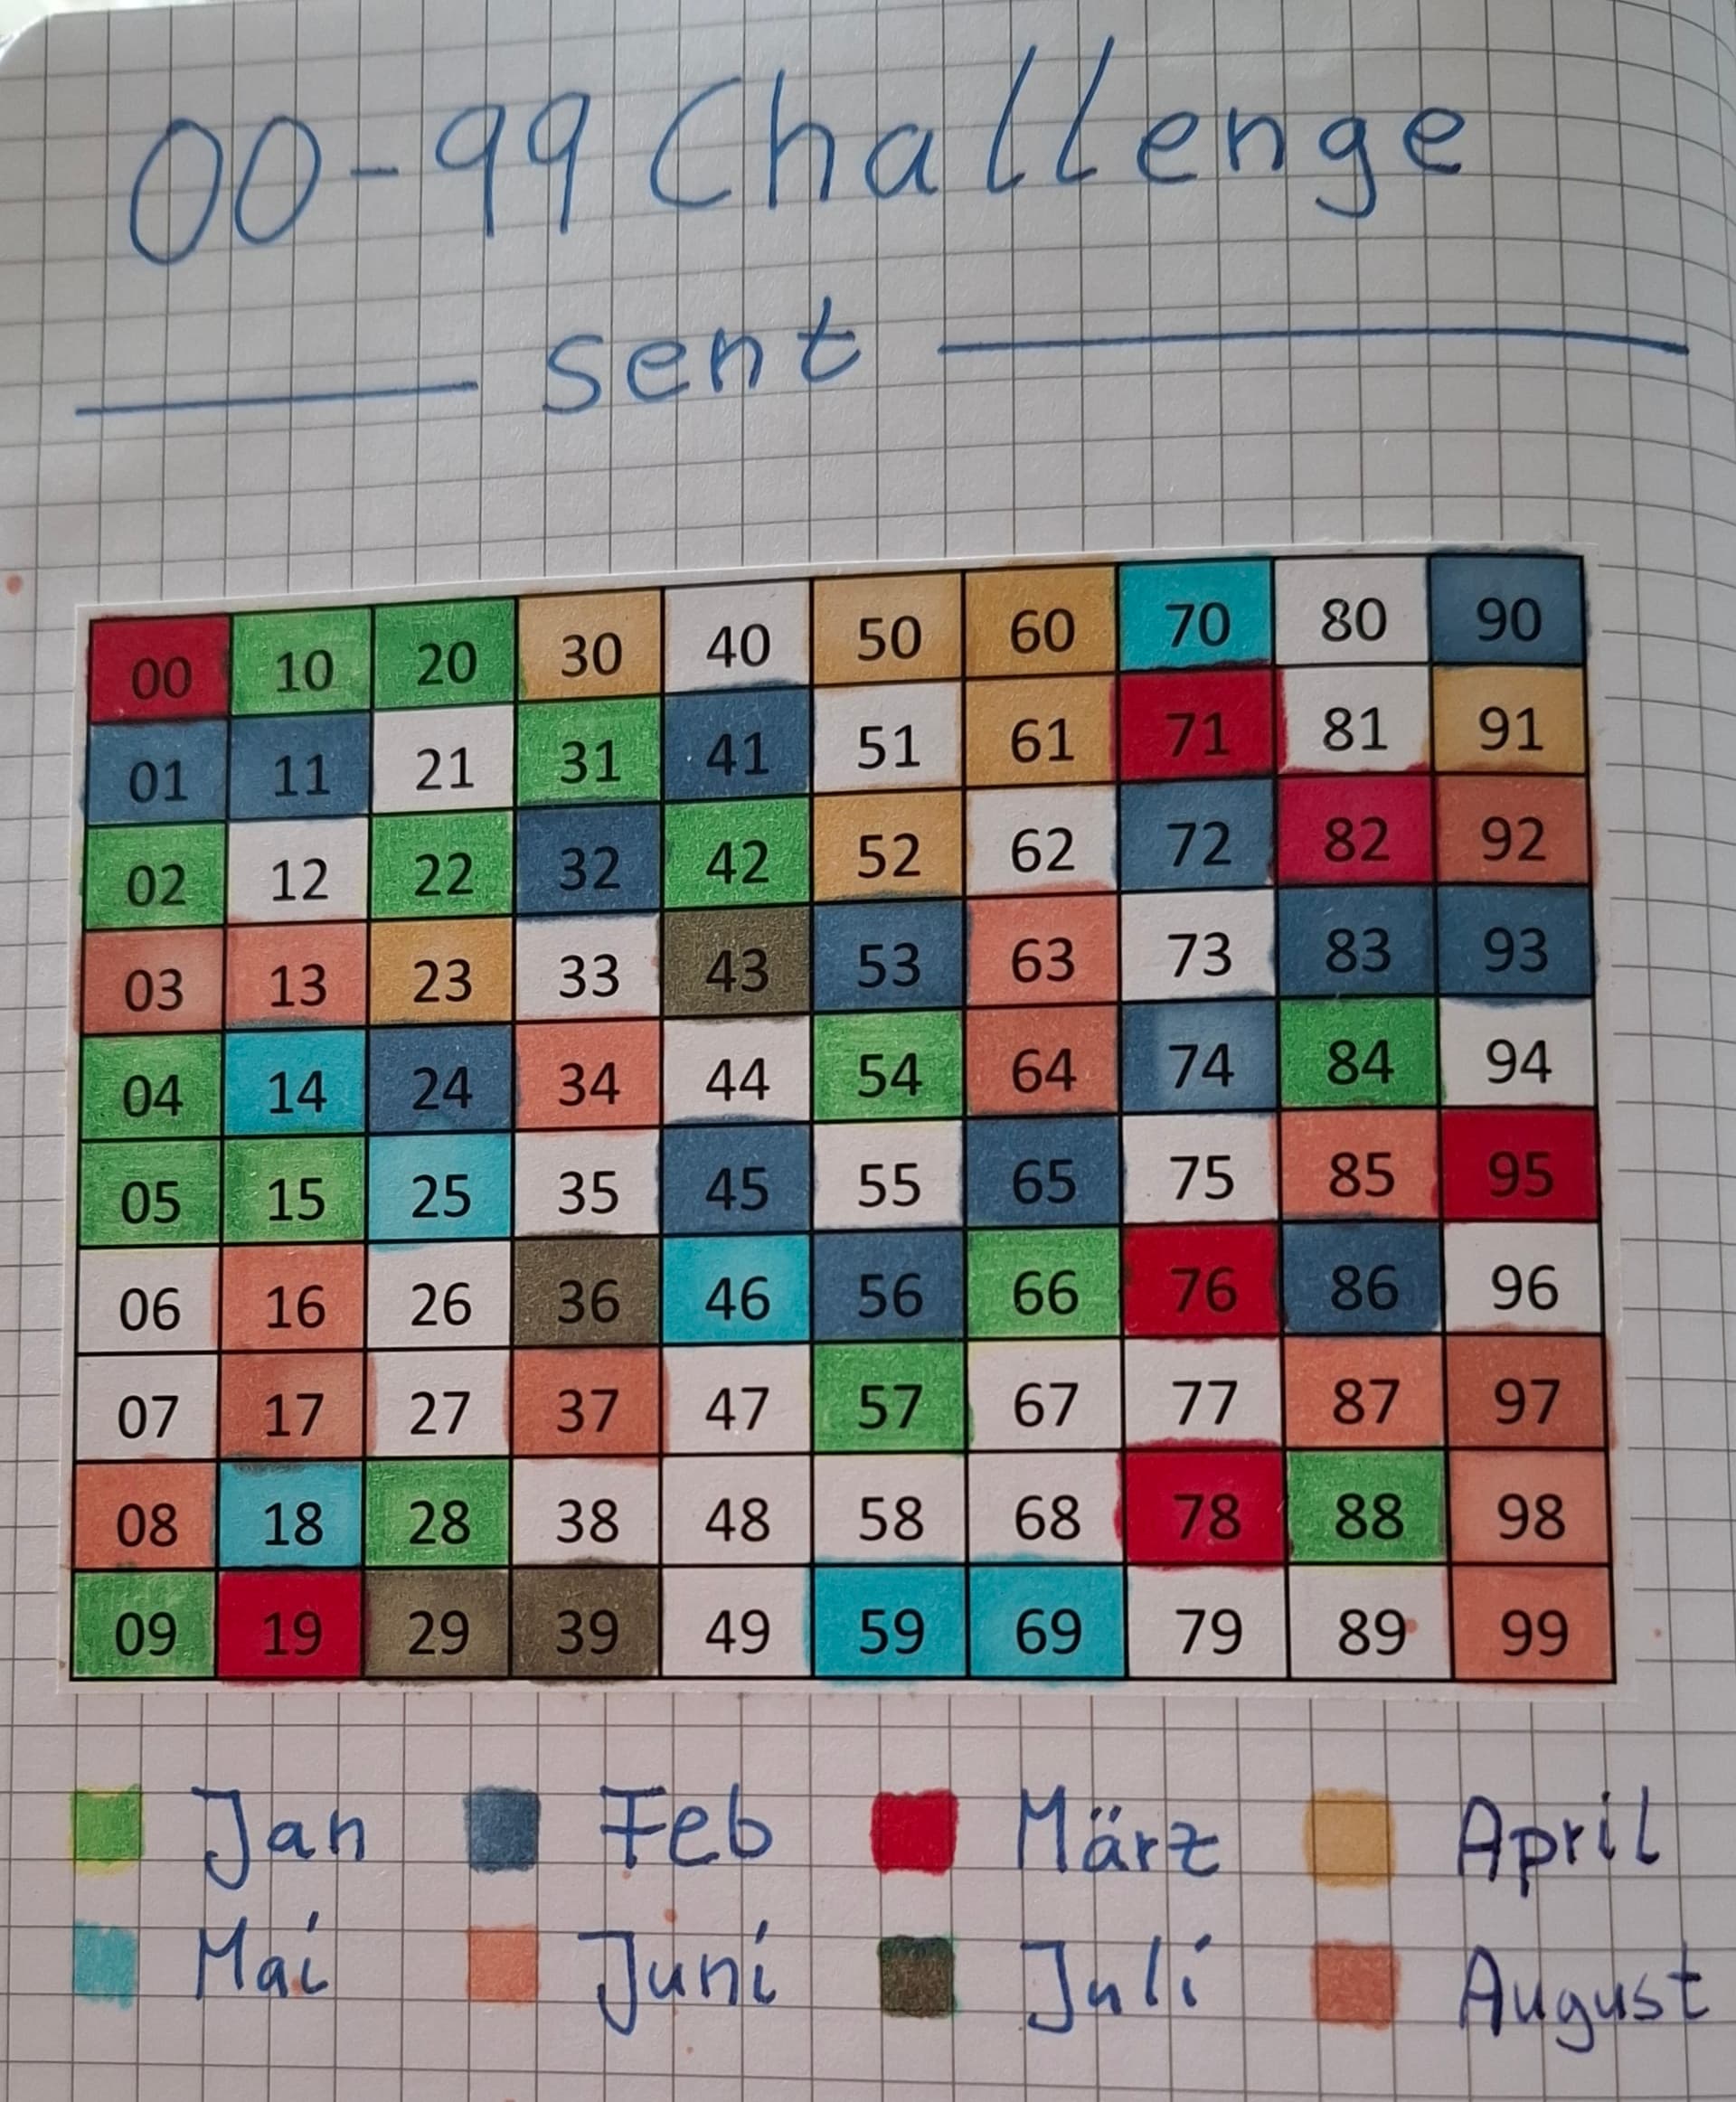 00-99 Challenge
sent
00 10 20 30 40 50 60 70 80 90
01 11 21 31 41 51 61 71 81 91
02 12 22 32 42 52 62 72 82 92
03 13 23 33 43 53 63 73 83 93
04 14 24 34 44 54 64 74 84 94
05 15 25 35 45 55 65 75 85 95
06 16 26 36 46 56 66 76 86 96
07 17 27 37 47 57 67 77 87 97
08 18 28 38 48 58 68 78 88 98
09 19 29 39 49 59 69 79 89 99
Jan Feb März April
Mai Juni Juli August